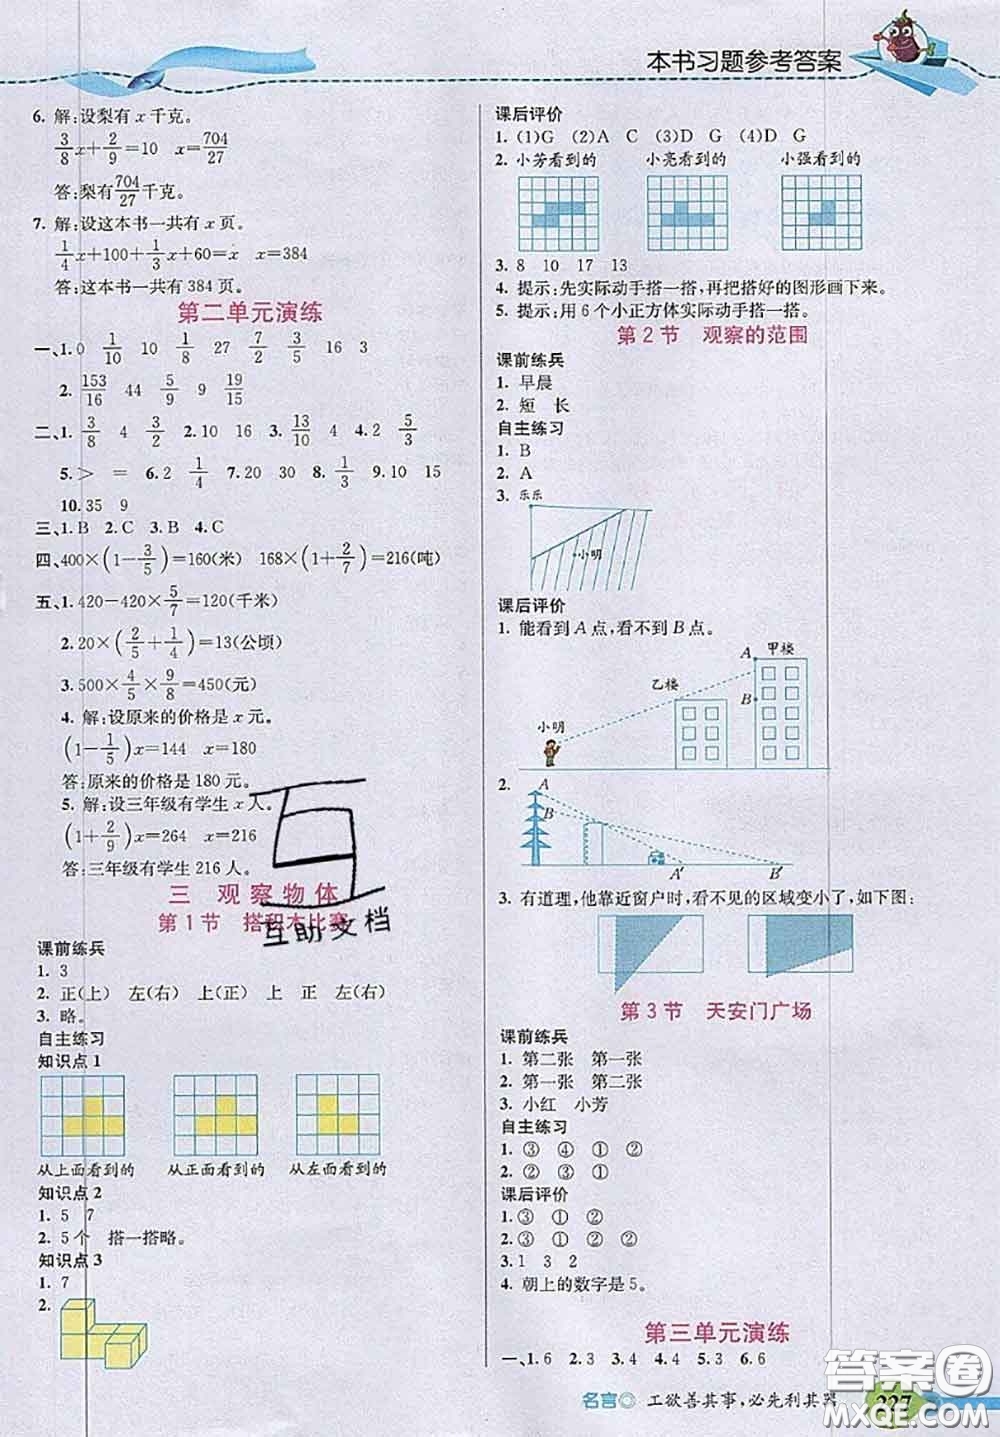 本书习题参考答案
6. 解:设梨有 x 千克。
3/8x+2/9=10 x=704/27
答:梨有704/27千克。
7. 解:设这本书一共有 x 页。
1/4x+100+1/3x+60=x x=384
答:这本书一共有 384 页。
第二单元演练
一、1. 0 1/10 10 1/8 27 7/2 3/5 16 3
2. 153/16 44 5/9 9 19/15
二、1. 3/8 4 3/2 2. 10 16 3. 13/10 4 4. 2 5/3
5. > = 6. 2 1/4 7. 20 30 8. 1/3 9. 10 15
10. 35 9
三、1. B 2. C 3. B 4. C
四、400×(1-3/5)=160(米) 168×(1+2/7)=216(吨)
五、1. 420-420×5/7=120(千米)
2. 20×(2/5+1/4)=13(公顷)
3. 500×4/5×9/8=450(元)
4. 解:设原来的价格是 x 元。
(1-1/5)x=144 x=180
答:原来的价格是 180 元。
5. 解:设三年级有学生 x 人。
(1+2/9)x=264 x=216
答:三年级有学生 216 人。
三 观察物体
第 1 节 搭积木比赛
互助文档
课前练兵
1. 3
2. 正(上) 左(右) 上(正) 上 正 左(右)
3. 略。
自主练习
知识点 1
从上面看到的 从正面看到的 从左面看到的
知识点 2
1. 5 7
2. 5个 搭一搭略。
知识点 3
1. 7
2.
课后评价
1. (1)G (2)A C (3)D G (4)D G
2. 小芳看到的 小亮看到的 小强看到的
3. 8 10 17 13
4. 提示:先实际动手搭一搭,再把搭好的图形画下来。
5. 提示:用 6 个小正方体实际动手搭一搭。
第 2 节 观察的范围
课前练兵
1. 早晨
2. 短 长
自主练习
1. B
2. A
3. 乐乐
小明
课后评价
1. 能看到 A 点,看不到 B 点。
A 甲楼
乙楼 B
小明
2. A
B
A′ B′
3. 有道理,他靠近窗户时,看不见的区域变小了,如下图:
第 3 节 天安门广场
课前练兵
1. 第二张 第一张
2. 第一张 第二张
3. 小红 小芳
自主练习
1. ③ ④ ① ②
2. ② ③ ①
课后评价
1. ③ ① ②
2. ③ ① ②
3. 1 3 2
4. 朝上的数字是 5。
第三单元演练
一、1. 6 2. 3 3. 4 4. 4 5. 3 6. 6
名言 工欲善其事,必先利其器
227
答案圈
MXQE.COM